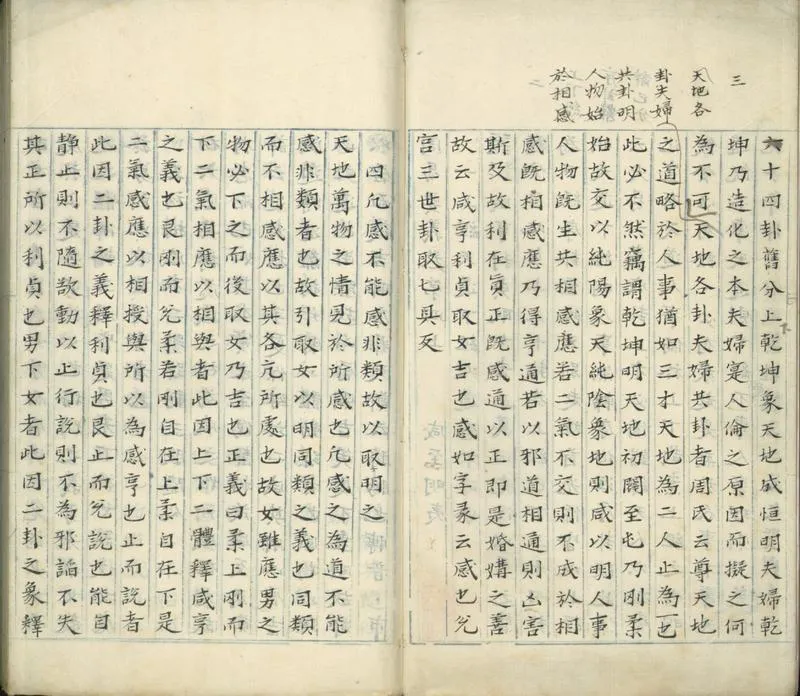 三
天地各
卦夫婦
共卦明
人物始
於相感
六十四卦舊分上下乾坤象天地咸恒明夫婦乾
坤乃造化之本夫婦寔人倫之原因而擬之何
為不可天地各卦夫婦共卦者周氏云尊天地
之道略於人事猶如三才天地為二人止為一也
此必不然竊謂乾坤明天地初闢至屯乃剛柔
始故交以純陽象天純陰象地則咸以明人事
人物既生共相感應若二氣不交則不成於相
感既相感應乃得亨通若以邪道相通則凶害
斯及故利在貞正既感通以正即是婚媾之善
故云咸亨利貞取女吉也感如字彖云感也兌
宫三世卦取七具反
四凡感不能感非類故以取明之
天地萬物之情見於所感也凡感之為道不能
感非類者也故引取女以明同類之義也同類
而不相感應以其各亢所處也故女雖應男之
物必下之而後取女乃吉也正義曰柔上剛而
下二氣相應以相與者此因上下二體釋咸亨
之義也艮剛而兌柔若剛自在上柔自在下是
二氣感應以相授與所以為感亨也止而說者
此因二卦之義釋利貞也艮止而兌說也能自
静止則不隨欲動以止行說則不為邪諂不失
其正所以利貞也男下女者此因二卦之象釋